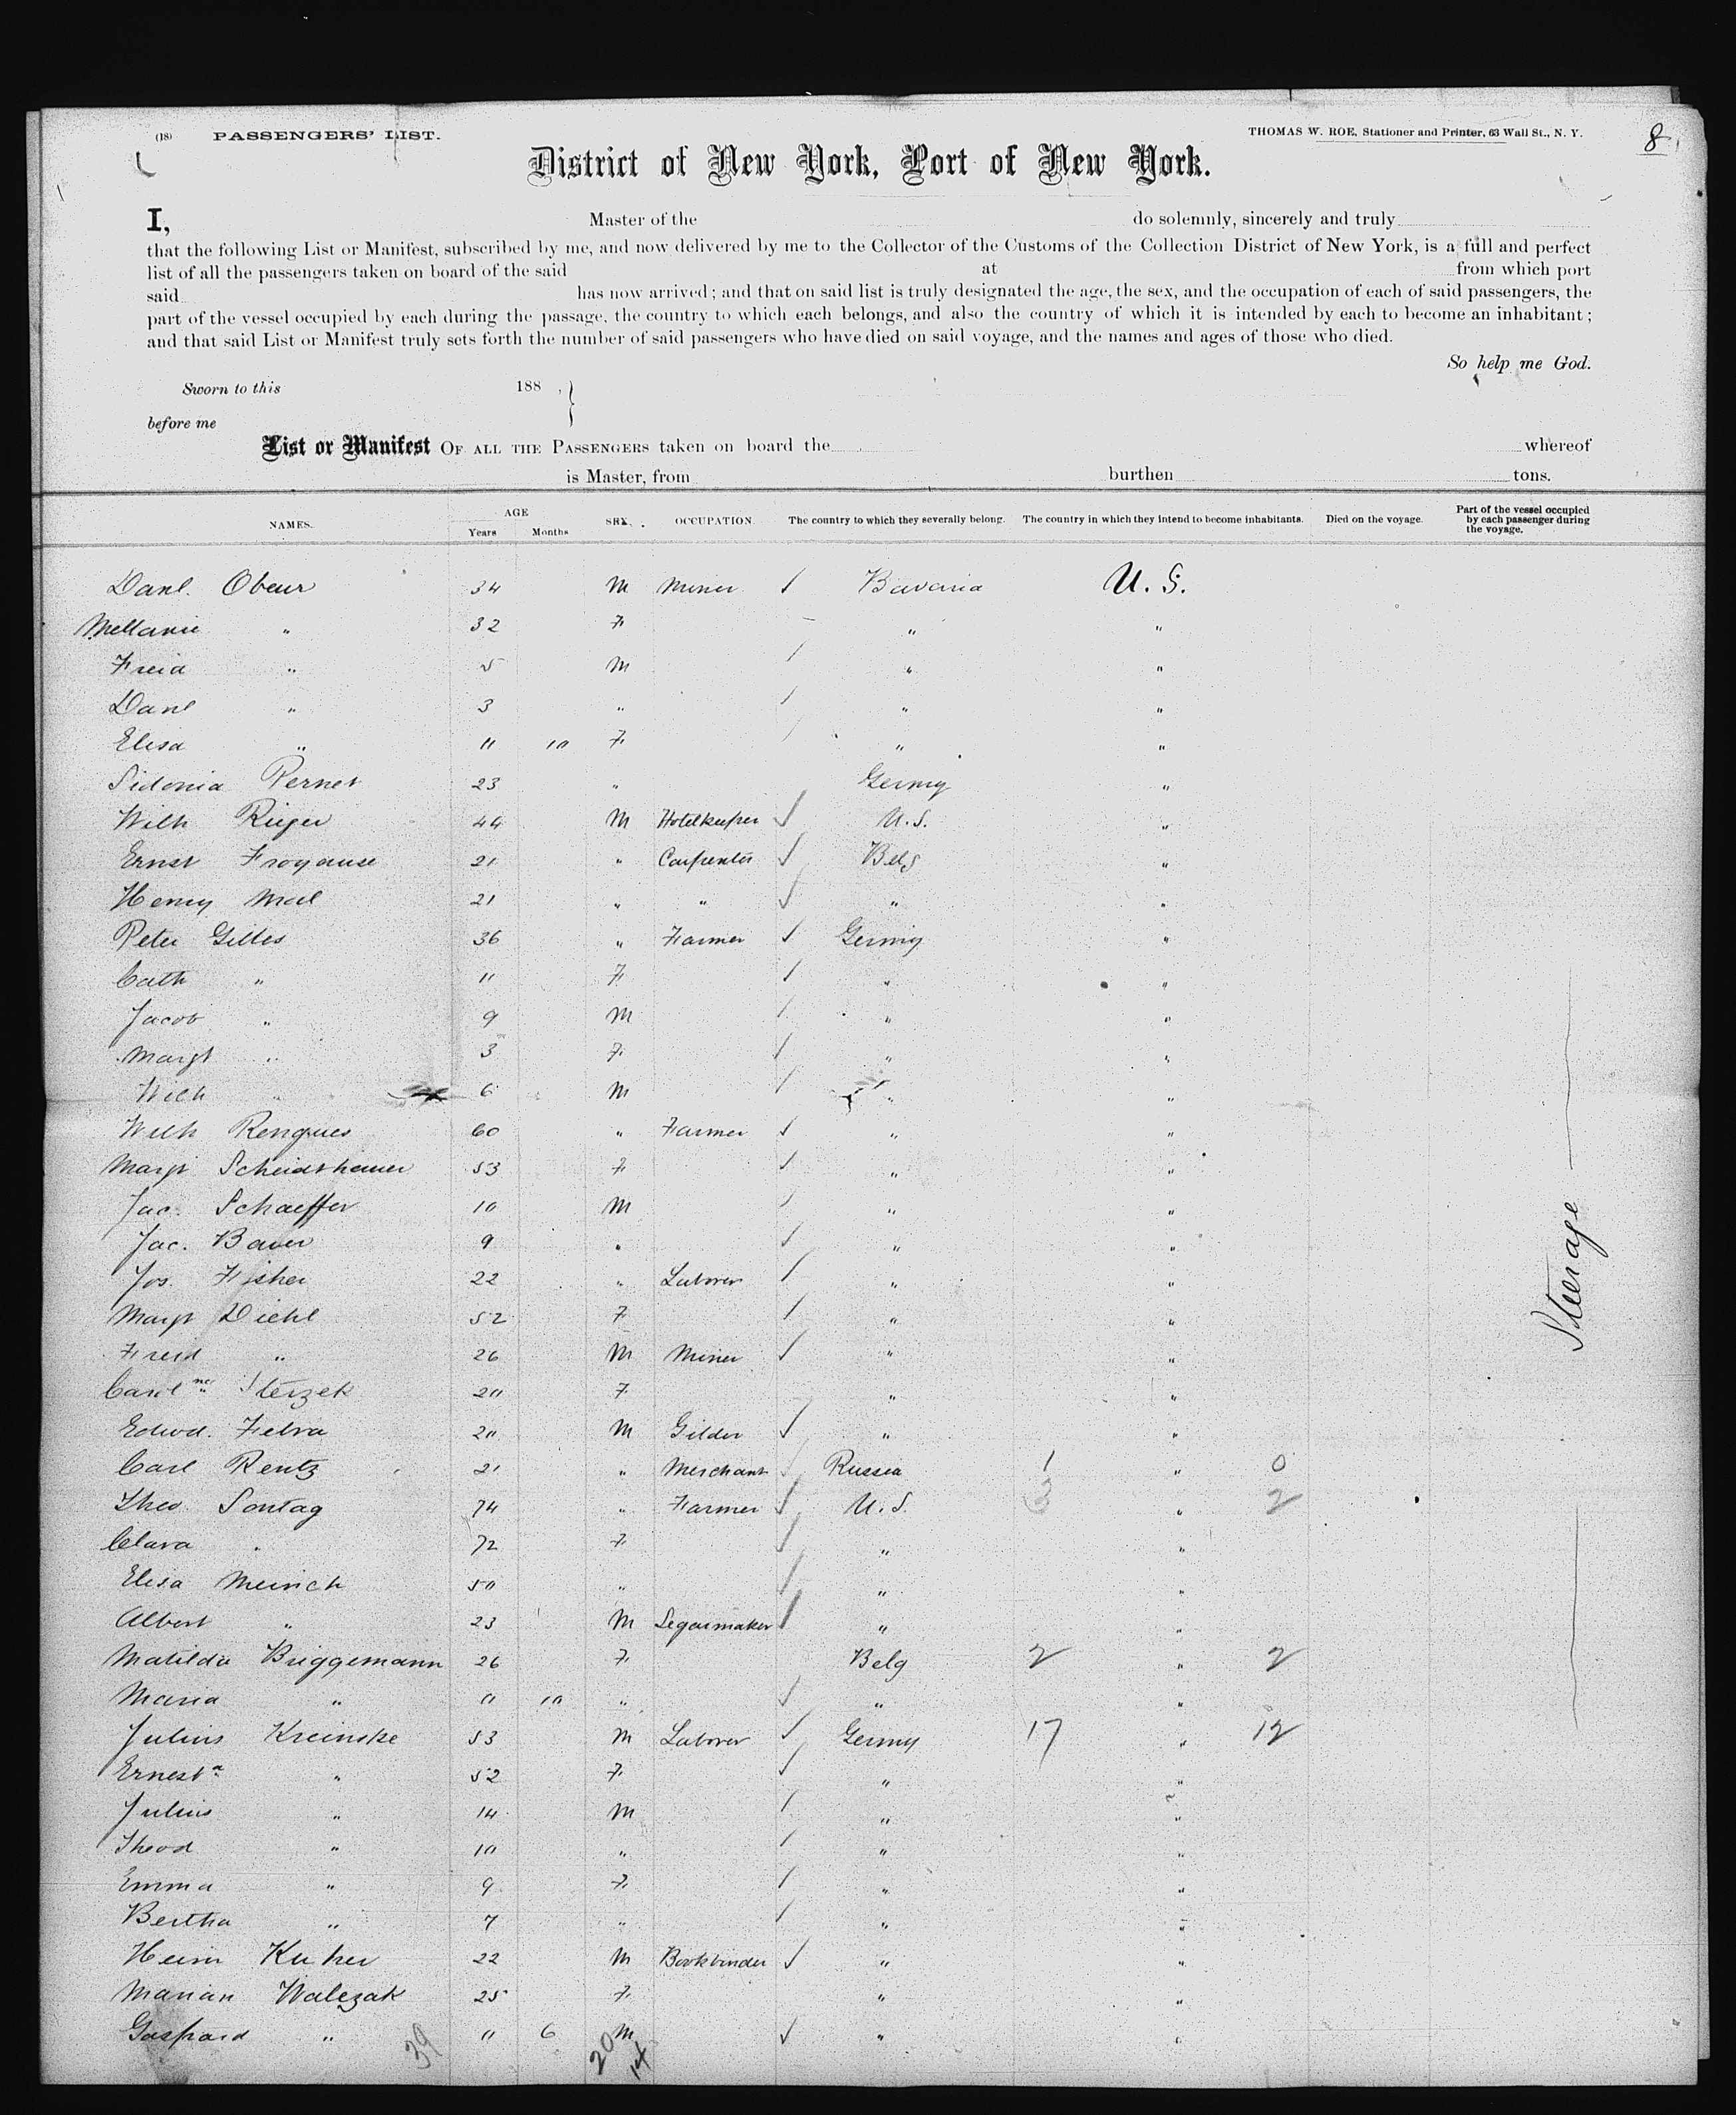 (18) PASSENGERS' LIST. THOMAS W. ROE, Stationer and Printer, 63 Wall St., N. Y. 8
District of New York, Port of New York.
I, Master of the do solemnly, sincerely and truly
that the following List or Manifest, subscribed by me, and now delivered by me to the Collector of the Customs of the Collection District of New York, is a full and perfect
list of all the passengers taken on board of the said at from which port
said has now arrived; and that on said list is truly designated the age, the sex, and the occupation of each of said passengers, the
part of the vessel occupied by each during the passage, the country to which each belongs, and also the country of which it is intended by each to become an inhabitant;
and that said List or Manifest truly sets forth the number of said passengers who have died on said voyage, and the names and ages of those who died.
So help me God.
Sworn to this 188 ,}
before me
List or Manifest OF ALL THE PASSENGERS taken on board the whereof
is Master, from burthen tons.
NAMES. AGE Years Months SEX. OCCUPATION. The country to which they severally belong. The country in which they intend to become inhabitants. Died on the voyage. Part of the vessel occupied by each passenger during the voyage.
Danl. Obeur 34 M Miner / Bavaria U. S.
Mellanie " 32 F " "
Freid " 5 M / " "
Danl " 3 " / " "
Elisa " " 10 F / " "
Sidonia Pernet 23 " Germy "
Wilh Rieger 44 M Hotelkeeper ✓ U. S. "
Ernst 21 " Carpenter ✓ Belg "
Henry 21 " " ✓ " "
Peter Gilles 36 " Farmer ✓ Germy "
Cath " 11 F / " "
Jacob " 9 M / " "
Margt " 3 F / " "
Wilh " 6 M / " "
Wilh 60 " Farmer ✓ " "
Margt 53 F / " "
Jac. Schaeffer 10 M / " "
Jac. Bauer 9 " / " "
Jos. Fisher 22 " Laborer / " "
Margt Diehl 52 F / " "
Freid " 26 M Miner ✓ " "
Carolne Sterzek 20 F " "
Edwd. Felra 20 M Gilder ✓ " "
Carl Rentz 21 " Merchant ✓ Russia 1 " 0
Theo. Sontag 74 " Farmer ✓ U. S. 3 " 2
Clara " 72 F / " "
Elisa Meinich 50 " / " "
Albert " 23 M Segarmaker / " "
Matilda Briggemann 26 F Belg 2 " 2
Maria " " 10 " ✓ " "
Julius Kreinske 53 M Laborer ✓ Germy 17 " 12
Ernesta " 52 F ✓ " "
Julius " 14 M / " "
Theod " 10 " / " "
Emma " 9 F / " "
Bertha " 7 " / " "
Heinr Kuher 22 M Bookbinder ✓ " "
Marian Walezak 25 F " "
Gaspard " " 6 M ✓ " "
39 20 14
Steerage